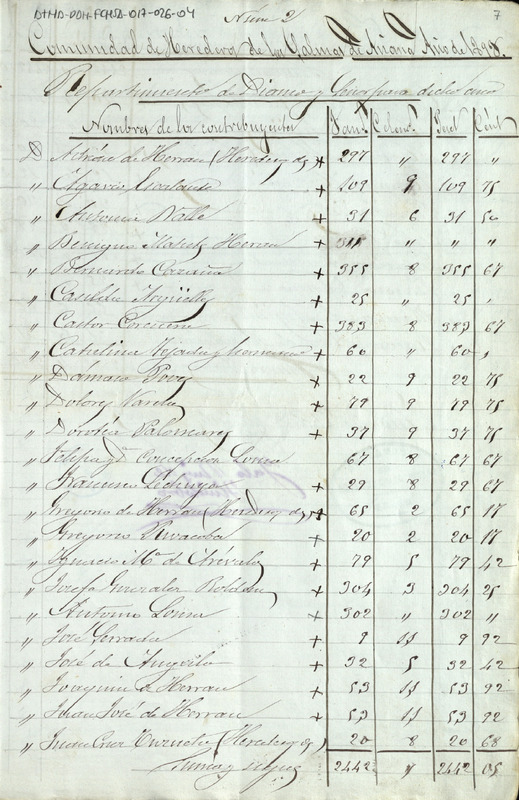 DTHD-DDH-FCHSD-017-026-04
Núm 2
7
Comunidad de Herederos de las Salinas de Añana Año de 1898.
Repartimiento de Diario y para dicho año
Nombres de los contribuyentes Fan.s Celem.s Pest Cent
D Adrián de Herran (Herederos de) + 297 " 297 "
" Escalante + 109 9 109 75
" Antonia Valle + 31 6 31 50
" Benigno Herran + " " "
" Bernardo + 355 8 355 67
" Casilda + 25 " 25 "
" Castor + 383 8 383 67
" Catalina Tejada y hermanos + 60 " 60 "
" Dámaso Pover + 22 9 22 75
" Dolores Varela + 79 9 79 75
" Dorotea Palomares + 37 9 37 75
" Felipa y D.ª Concepcion Loma 67 8 67 67
" Francisco + 29 8 29 67
" Gregorio de Herran (Herederos de) + 65 2 65 17
" Gregorio + 20 2 20 17
" Ignacio M.ª de Arévalo + 79 5 79 42
" Josefa Gonzalez Roldán + 304 3 304 25
" Antonio Loma + 302 " 302 "
" José Serrada + 9 11 9 92
" José de Angulo + 32 5 32 42
" Joaquina de Herran + 53 11 53 92
" Juan José de Herran + 53 11 53 92
" Juan Cruz (Herederos de) 20 8 20 68
Suma y sigue 2442 " 2442 05